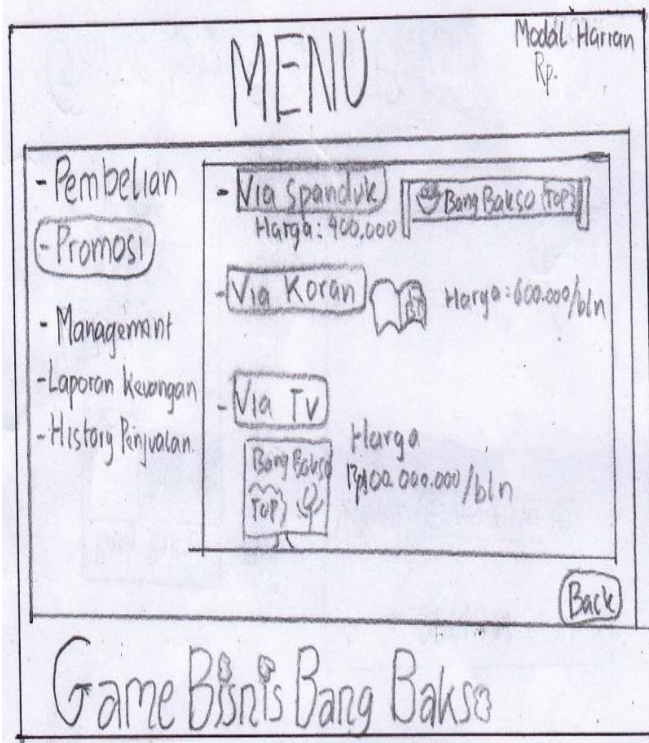 MENU
Modal Harian
Rp.
- Pembelian
- Promosi
- Management
- Laporan Keuangan
- History Penjualan
- Via Spanduk
Harga: 400.000
Bang Bakso TOP
- Via Koran
Harga: 600.000/bln
- Via Tv
Bang Bakso
TOP
Harga
Rp100.000.000/bln
Back
Game Bisnis Bang Bakso